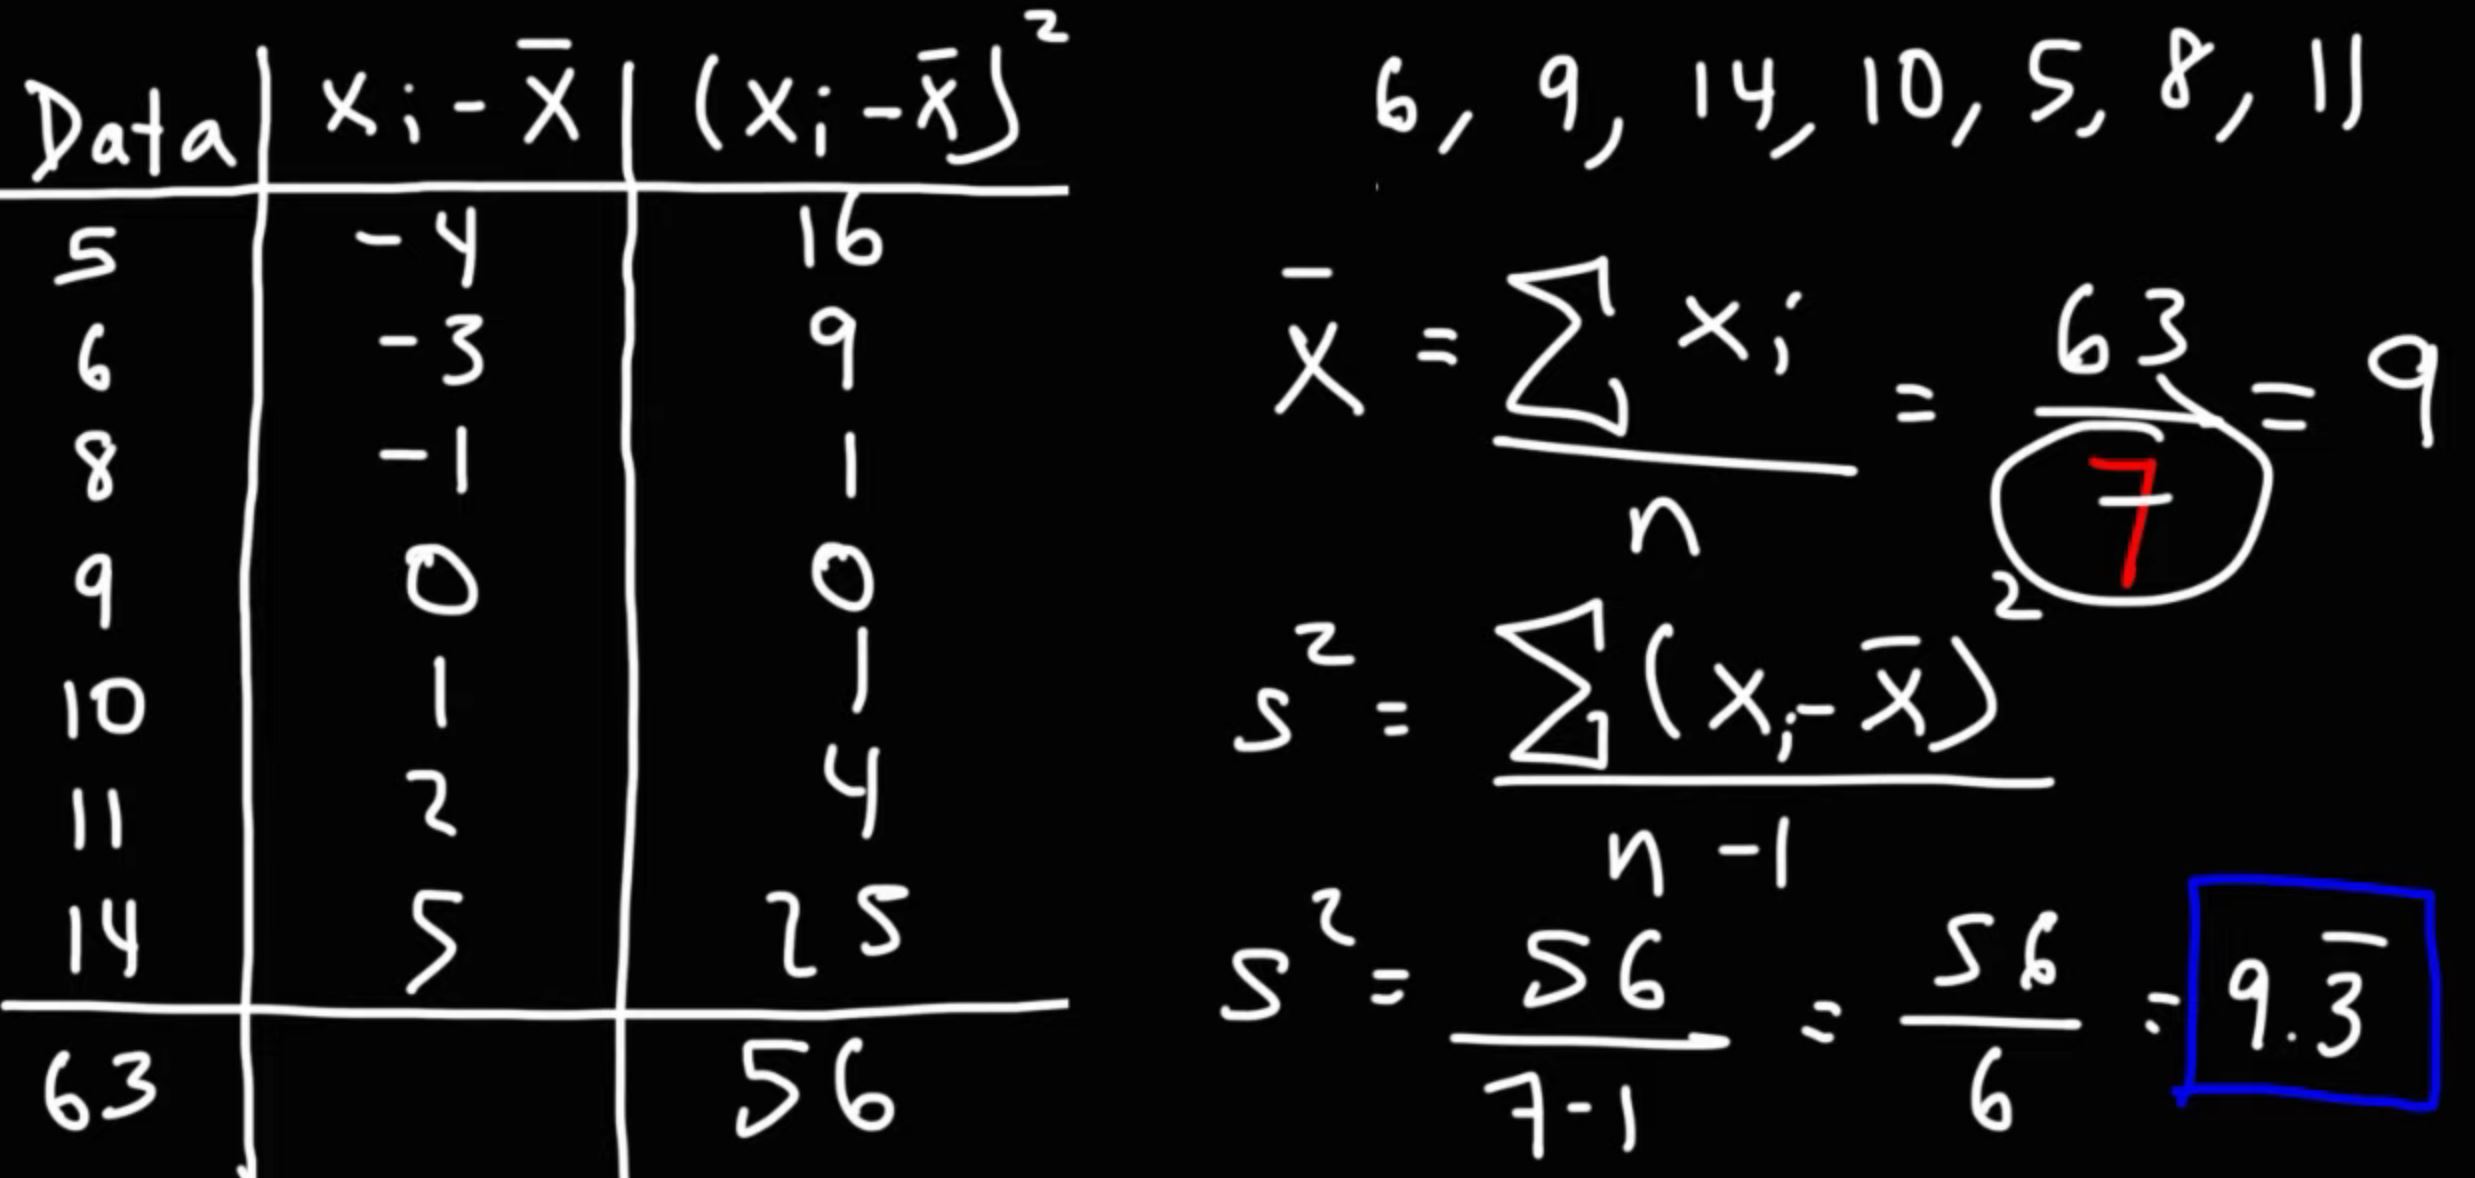 Data | xᵢ - x̄ | (xᵢ - x̄)²
5 | -4 | 16
6 | -3 | 9
8 | -1 | 1
9 | 0 | 0
10 | 1 | 1
11 | 2 | 4
14 | 5 | 25
63 | | 56
6, 9, 14, 10, 5, 8, 11
x̄ = ∑ xᵢ / n = 63 / 7 = 9
s² = ∑ (xᵢ - x̄)² / n - 1
s² = 56 / 7 - 1 = 56 / 6 = 9.3̅